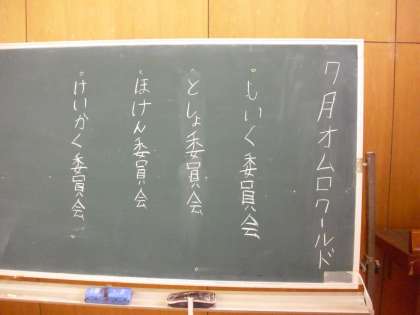 7月オムロワールド
・しいく委員会
・としょ委員会
・ほけん委員会
・けいかく委員会